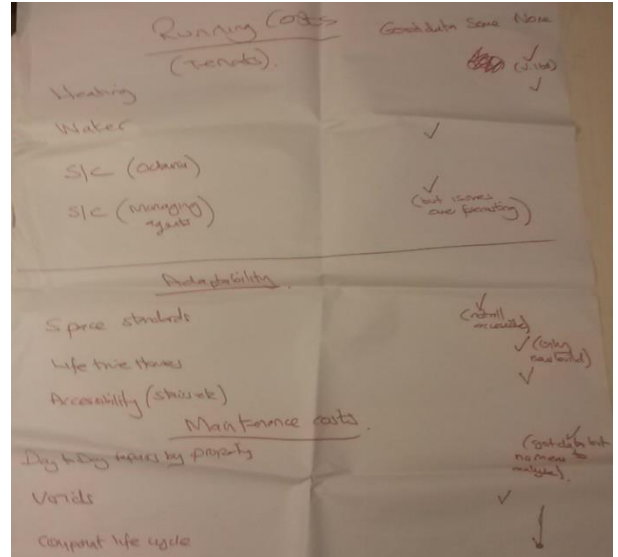 Running Costs Good data Some None
(Tenants).
✓
Heating (✓ ✓
Water ✓
S/C (Octavia)
S/C (Managing agents) ✓ (but issues over formatting)
Adaptability.
Space standards ✓ (not all accurate)
Life time Homes ✓ (only new build)
Accessibility (stairs etc) ✓
Maintenance costs.
Day to Day repairs by property ✓ (got data but no means to analyse).
Voids ✓
Component life cycle